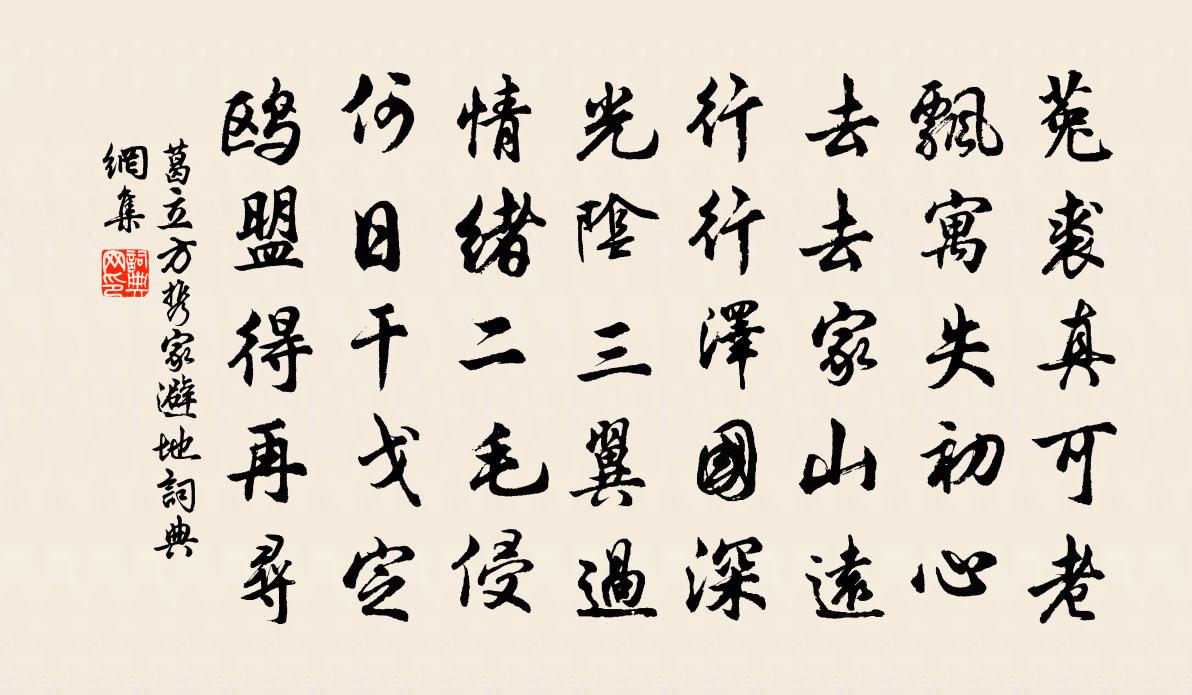 菟裘真可老
飄寓失初心
去去家山遠
行行澤國深
光陰三翼過
情緒二毛侵
何日干戈定
鸥盟得再尋
葛立方携家避地詞典
網集
詞典网印